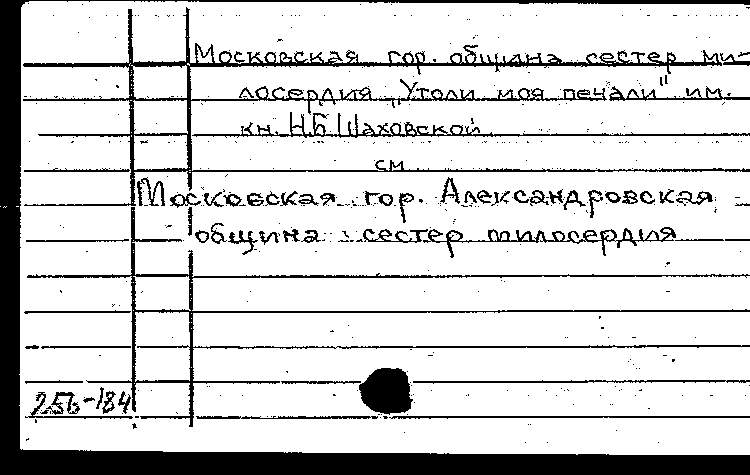 Московская гор. община сестер ми-
лосердия „Утоли моя печали" им.
кн. Н.Б Шаховской
см
Московская гор. Александровская
община сестер милосердия
256-184